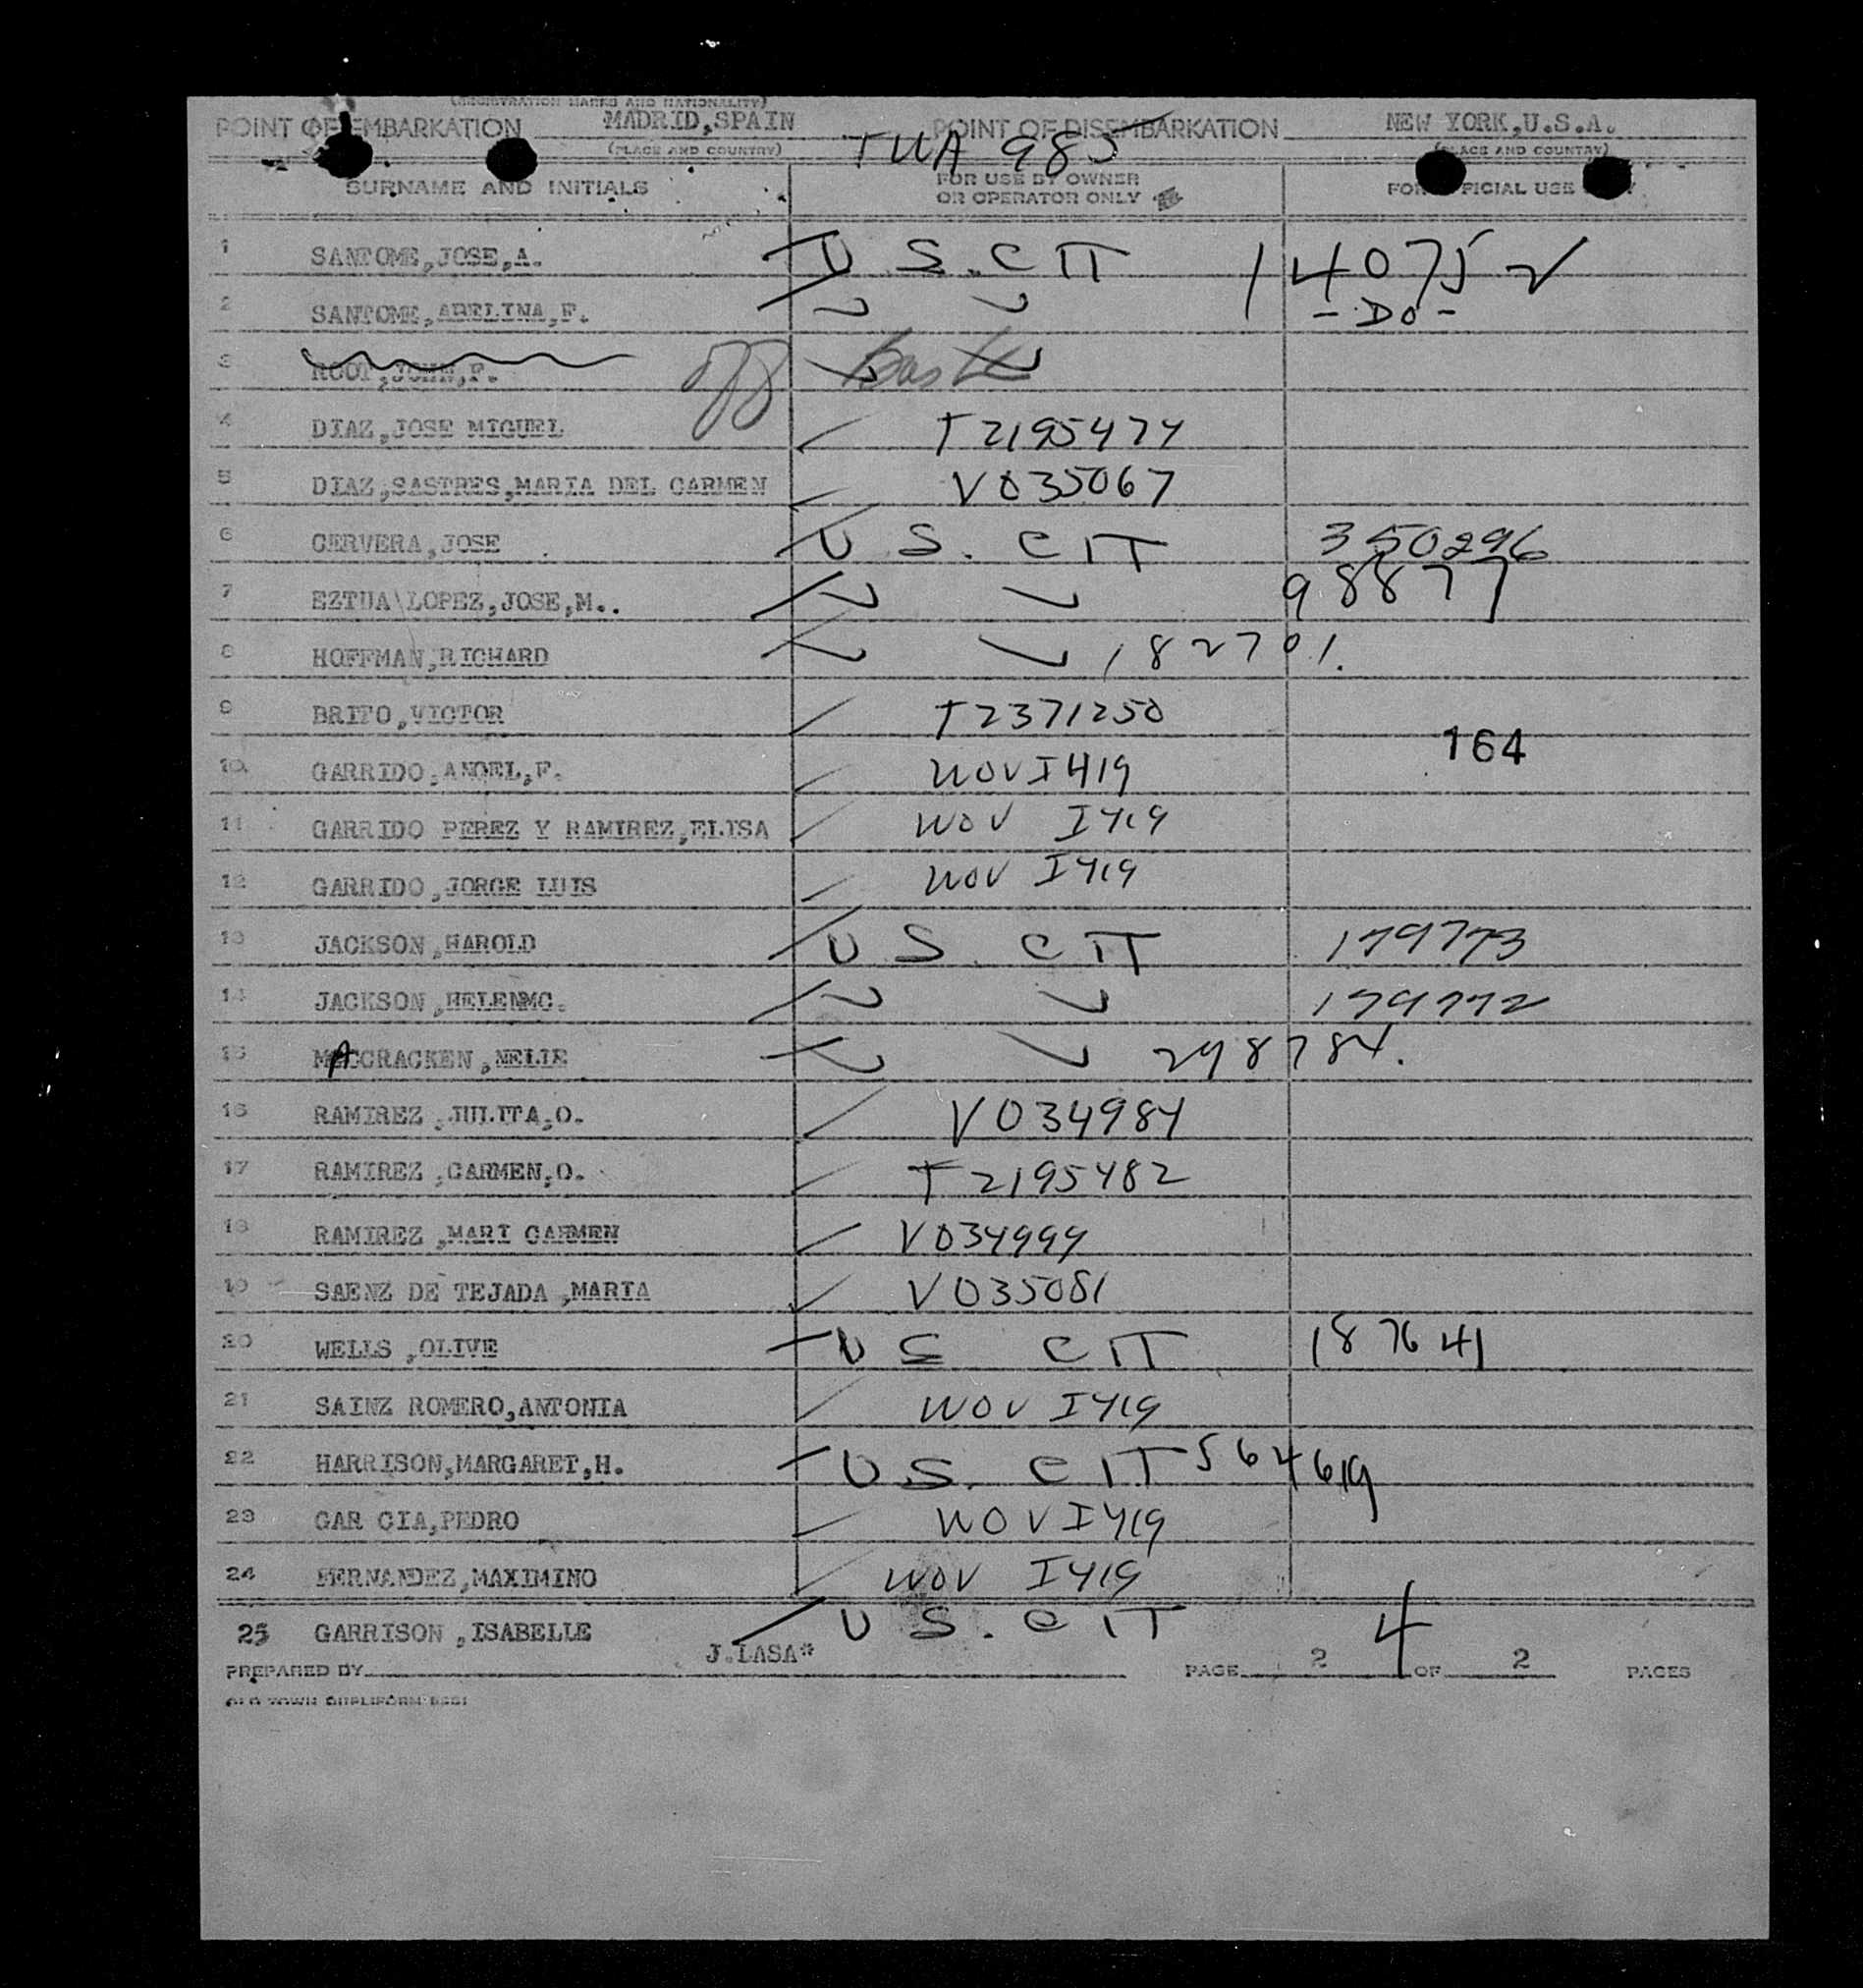 (REGISTRATION MARKS AND NATIONALITY)
POINT OF EMBARKATION MADRID,SPAIN POINT OF DISEMBARKATION NEW YORK,U.S.A.
(PLACE AND COUNTRY) TWA 985 (PLACE AND COUNTRY)
SURNAME AND INITIALS FOR USE BY OWNER OR OPERATOR ONLY FOR OFFICIAL USE
1 SANTOME,JOSE,A. U S. CIT 14075
2 SANTOME,ABELINA,F. -DO-
3 ROOT,JOHN,F. off
4 DIAZ,JOSE MIGUEL T2195474
5 DIAZ,SASTRES,MARIA DEL CARMEN V035067
6 CERVERA,JOSE U S. CIT 350296
7 EZTUA\LOPEZ,JOSE,M.. 98877
8 HOFFMAN,RICHARD 182701.
9 BRITO,VICTOR T2371250
164
10 GARRIDO,ANGEL,F. WOV I419
11 GARRIDO PEREZ Y RAMIREZ,ELISA WOV I419
12 GARRIDO,JORGE LUIS WOV I419
13 JACKSON,HAROLD U S. CIT 179773
14 JACKSON,HELENMC. 179772
15 MACCRACKEN,NELIE 298784.
16 RAMIREZ,JULITA,O. V034984
17 RAMIREZ,CARMEN,O. T2195482
18 RAMIREZ,MARI CARMEN V034999
19 SAENZ DE TEJADA,MARIA V035081
20 WELLS,OLIVE U S CIT 187641
21 SAINZ ROMERO,ANTONIA WOV I419
22 HARRISON,MARGARET,H. U S. CIT 564619
23 GAR CIA,PEDRO WOV I419
24 FERNANDEZ,MAXIMINO WOV I419
25 GARRISON,ISABELLE U S. CIT
PREPARED BY J.LASA* PAGE 2 4 OF 2 PAGES
OLD TOWN DUPLIFORM